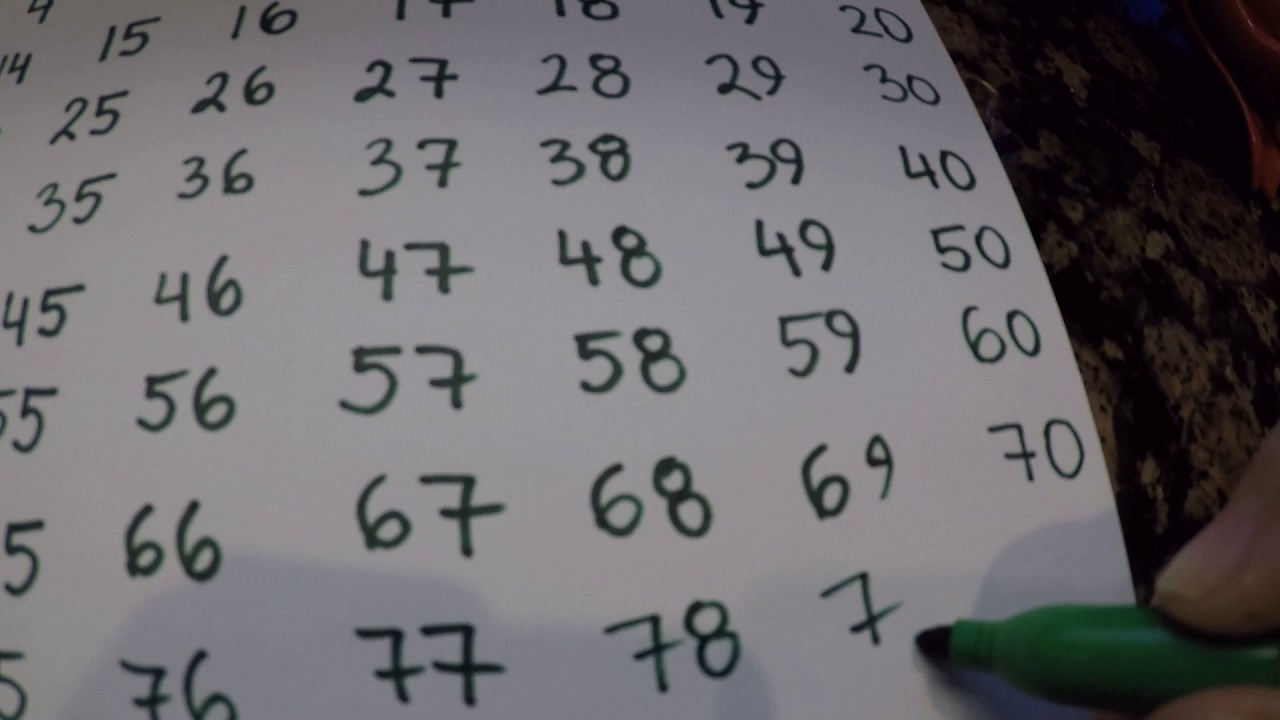 4
14 15 16 17 18 19 20
25 26 27 28 29 30
35 36 37 38 39 40
45 46 47 48 49 50
55 56 57 58 59 60
5 66 67 68 69 70
5 76 77 78 7